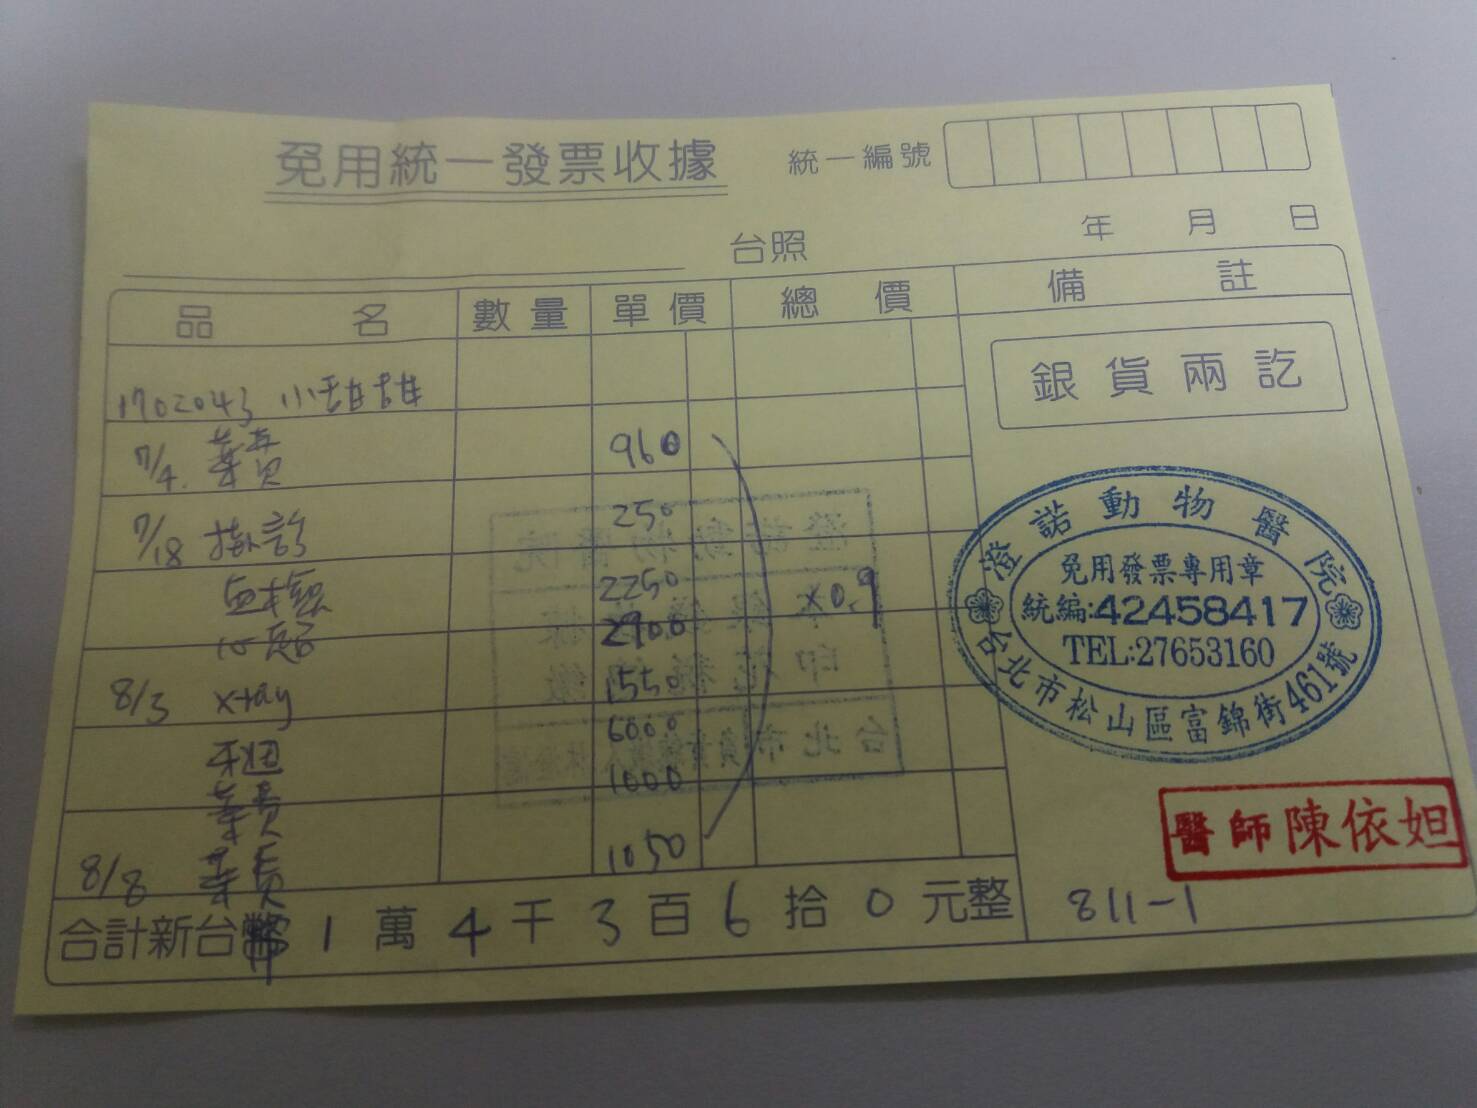 免用統一發票收據
統一編號
台照
年 月 日
品 名 數量 單價 總 價 備 註
1702043 小甜甜
銀貨兩訖
7/4. 藥費 960
7/18 掛診 250
血檢 2250
心超 2900
x0.9
8/3 x-ray 1550
6000
藥費 1000
8/8 藥費 1050
合計新台幣 1 萬 4 千 3 百 6 拾 0 元整
澄諾動物醫院
免用發票專用章
統編:42458417
TEL:27653160
台北市松山區富錦街461號
醫師陳依妲
811-1